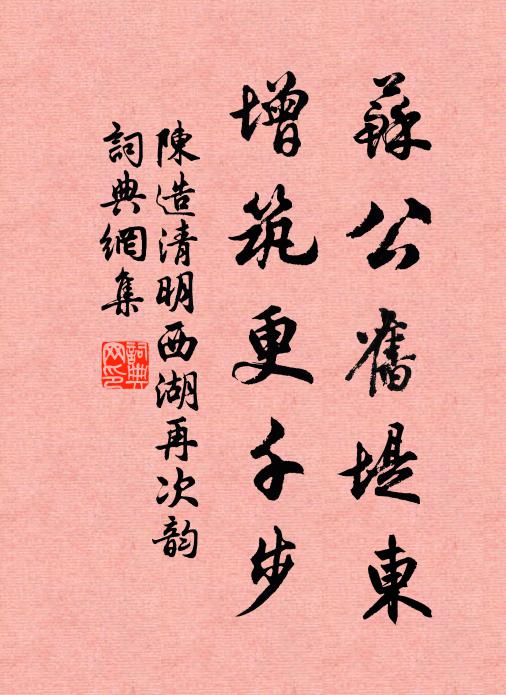 蘇公舊堤東
增筑更千步
陳造清明西湖再次韵
詞典網集
詞典
网印